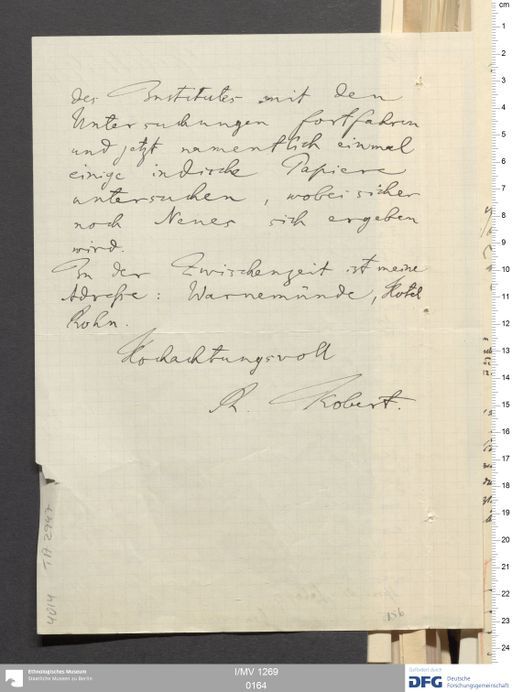 des Institutes mit den
Untersuchungen fortfahren
und jetzt namentlich einmal
einige indische Papiere
untersuchen, wobei sicher
noch Neues sich ergeben
wird.
In der Zwischenzeit ist meine
Adresse: Warnemünde, Hotel
Rohn.
Hochachtungsvoll
R. Kobert.
4014 TA 2947
156
Ethnologisches Museum
Staatliche Museen zu Berlin
I/MV 1269
0164
Gefördert durch
DFG Deutsche
Forschungsgemeinschaft
cm
1
2
3
4
5
6
7
8
9
10
11
12
13
14
15
16
17
18
19
20
21
22
23
24